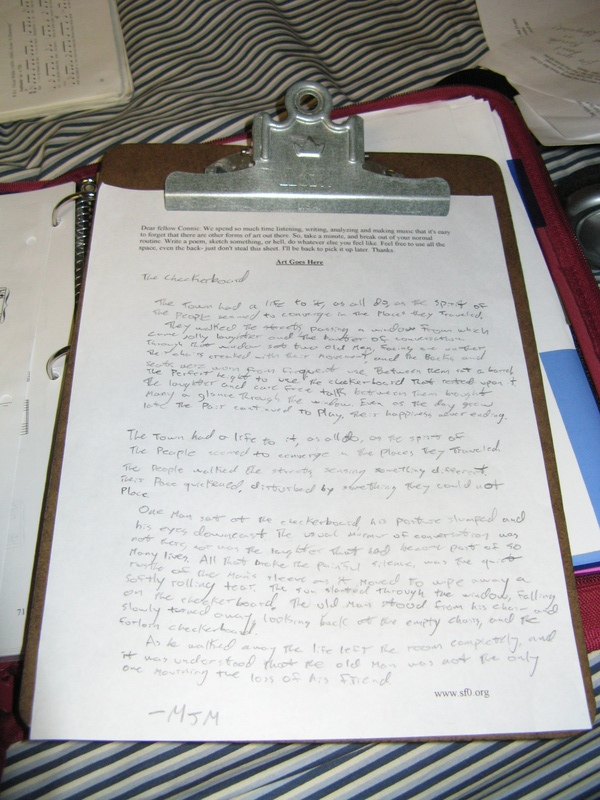 Dear fellow Comite. We spend so much time listening, writing, analyzing and making music that it's easy
to forget that there are other forms of art out there. So, take a minute, and break out of your normal
routine. Write a poem, sketch something, or hell, do whatever else you feel like. Feel free to use all the
space, even the back- just don't steal this sheet. I'll be back to pick it up later. Thanks.
Art Goes Here
The Checkerboard
The Town had a life to it, as all do, as the spirit of
The People seemed to converge in the Places they Traveled.
They walked the streets passing a window from which
came jolly laughter and the of conversation.
Through that window sat two old Men, facing one another
Their chairs creaked with their movement, and the Backs and
seats were worn from frequent use. Between them sat a barrel
The Perfect height to use the checkerboard that rested upon it
The laughter and care free talk between them brought
Many a glance through the window. Even as the day grew
late the Pair continued to Play, their happiness never ending.
The Town had a life to it, as all do, as the spirit of
The People seemed to converge in the Places they Traveled.
The People walked the streets sensing something different,
their Pace quickened, disturbed by something they could not
Place.
One Man sat at the checkerboard, his posture slumped and
his eyes downcast. The usual of conversation was
not there, nor was the laughter that had become part of so
Many lives. All that make the painful silence, was the quiet
rustle of the man's sleeve as it moved to wipe away a
softly rolling tear. The sun slanted through the window, falling
on the checkerboard. The old Man stood from his chair and
slowly turned away, looking back at the empty chairs, and the
forlorn checkerboard.
As he walked away the life left the room completely, and
it was understood that the old Man was not the only
one mourning the loss of his friend
www.sf0.org
-MJM
71